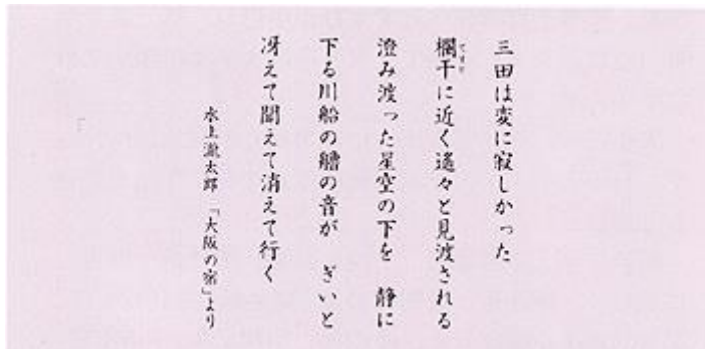 三田は変に寂しかった
欄干に近く遙々と見渡される
てすり
澄み渡った星空の下を　静に
下る川船の艪の音が　ぎいと
冴えて聞えて消えて行く
水上瀧太郎「大阪の宿」より